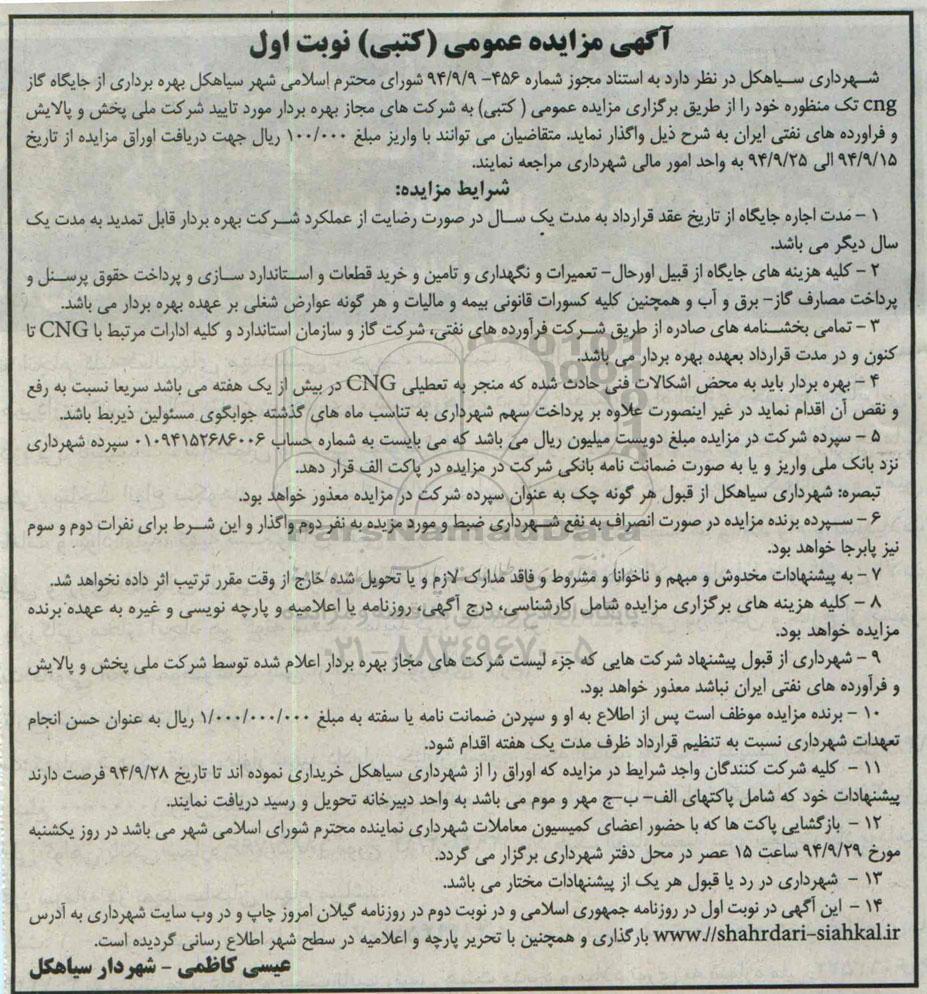 آگهی مزایده عمومی (کتبی) نوبت اول
شهرداری سیاهکل در نظر دارد به استناد مجوز شماره ۴۵۶- ۹۴/۹/۹ شورای محترم اسلامی شهر سیاهکل بهره برداری از جایگاه گاز
cng تک منظوره خود را از طریق برگزاری مزایده عمومی ( کتبی) به شرکت های مجاز بهره بردار مورد تایید شرکت ملی پخش و پالایش
و فراورده های نفتی ایران به شرح ذیل واگذار نماید. متقاضیان می توانند با واریز مبلغ ۱۰۰/۰۰۰ ریال جهت دریافت اوراق مزایده از تاریخ
۹۴/۹/۱۵ الی ۹۴/۹/۲۵ به واحد امور مالی شهرداری مراجعه نمایند.
شرایط مزایده:
۱ - مدت اجاره جایگاه از تاریخ عقد قرارداد به مدت یک سال در صورت رضایت از عملکرد شرکت بهره بردار قابل تمدید به مدت یک
سال دیگر می باشد.
۲ - کلیه هزینه های جایگاه از قبیل اورحال- تعمیرات و نگهداری و تامین و خرید قطعات و استاندارد سازی و پرداخت حقوق پرسنل و
پرداخت مصارف گاز- برق و آب و همچنین کلیه کسورات قانونی بیمه و مالیات و هر گونه عوارض شغلی بر عهده بهره بردار می باشد.
۳ - تمامی بخشنامه های صادره از طریق شرکت فرآورده های نفتی، شرکت گاز و سازمان استاندارد و کلیه ادارات مرتبط با CNG تا
کنون و در مدت قرارداد بعهده بهره بردار می باشد.
۴ - بهره بردار باید به محض اشکالات فنی حادث شده که منجر به تعطیلی CNG در بیش از یک هفته می باشد سریعا نسبت به رفع
و نقص آن اقدام نماید در غیر اینصورت علاوه بر پرداخت سهم شهرداری به تناسب ماه های گذشته جوابگوی مسئولین ذیربط باشد.
۵ - سپرده شرکت در مزایده مبلغ دویست میلیون ریال می باشد که می بایست به شماره حساب ۰۱۰۹۴۱۵۲۶۸۶۰۰۶ سپرده شهرداری
نزد بانک ملی واریز و یا به صورت ضمانت نامه بانکی شرکت در مزایده در پاکت الف قرار دهد.
تبصره: شهرداری سیاهکل از قبول هر گونه چک به عنوان سپرده شرکت در مزایده معذور خواهد بود.
۶ - سپرده برنده مزایده در صورت انصراف به نفع شهرداری ضبط و مورد مزیده به نفر دوم واگذار و این شرط برای نفرات دوم و سوم
نیز پابرجا خواهد بود.
۷ - به پیشنهادات مخدوش و مبهم و ناخوانا و مشروط و فاقد مدارک لازم و یا تحویل شده خارج از وقت مقرر ترتیب اثر داده نخواهد شد.
۸ - کلیه هزینه های برگزاری مزایده شامل کارشناسی، درج آگهی، روزنامه یا اعلامیه و پارچه نویسی و غیره به عهده برنده
مزایده خواهد بود.
۹ - شهرداری از قبول پیشنهاد شرکت هایی که جزء لیست شرکت های مجاز بهره بردار اعلام شده توسط شرکت ملی پخش و پالایش
و فرآورده های نفتی ایران نباشد معذور خواهد بود.
۱۰ - برنده مزایده موظف است پس از اطلاع به او و سپردن ضمانت نامه یا سفته به مبلغ ۱/۰۰۰/۰۰۰/۰۰۰ ریال به عنوان حسن انجام
تعهدات شهرداری نسبت به تنظیم قرارداد ظرف مدت یک هفته اقدام شود.
۱۱ - کلیه شرکت کنندگان واجد شرایط در مزایده که اوراق را از شهرداری سیاهکل خریداری نموده اند تا تاریخ ۹۴/۹/۲۸ فرصت دارند
پیشنهادات خود که شامل پاکتهای الف- ب-ج مهر و موم می باشد به واحد دبیرخانه تحویل و رسید دریافت نمایند.
۱۲ - بازگشایی پاکت ها که با حضور اعضای کمیسیون معاملات شهرداری نماینده محترم شورای اسلامی شهر می باشد در روز یکشنبه
مورخ ۹۴/۹/۲۹ ساعت ۱۵ عصر در محل دفتر شهرداری برگزار می گردد.
۱۳ - شهرداری در رد یا قبول هر یک از پیشنهادات مختار می باشد.
۱۴ - این آگهی در نوبت اول در روزنامه جمهوری اسلامی و در نوبت دوم در روزنامه گیلان امروز چاپ و در وب سایت شهرداری به آدرس
www.//shahrdari-siahkal.ir بارگذاری و همچنین با تحریر پارچه و اعلامیه در سطح شهر اطلاع رسانی گردیده است.
عیسی کاظمی - شهردار سیاهکل
ParsNamadData
۰۲۱-۸۸۳۴۹۶۷۰-۵